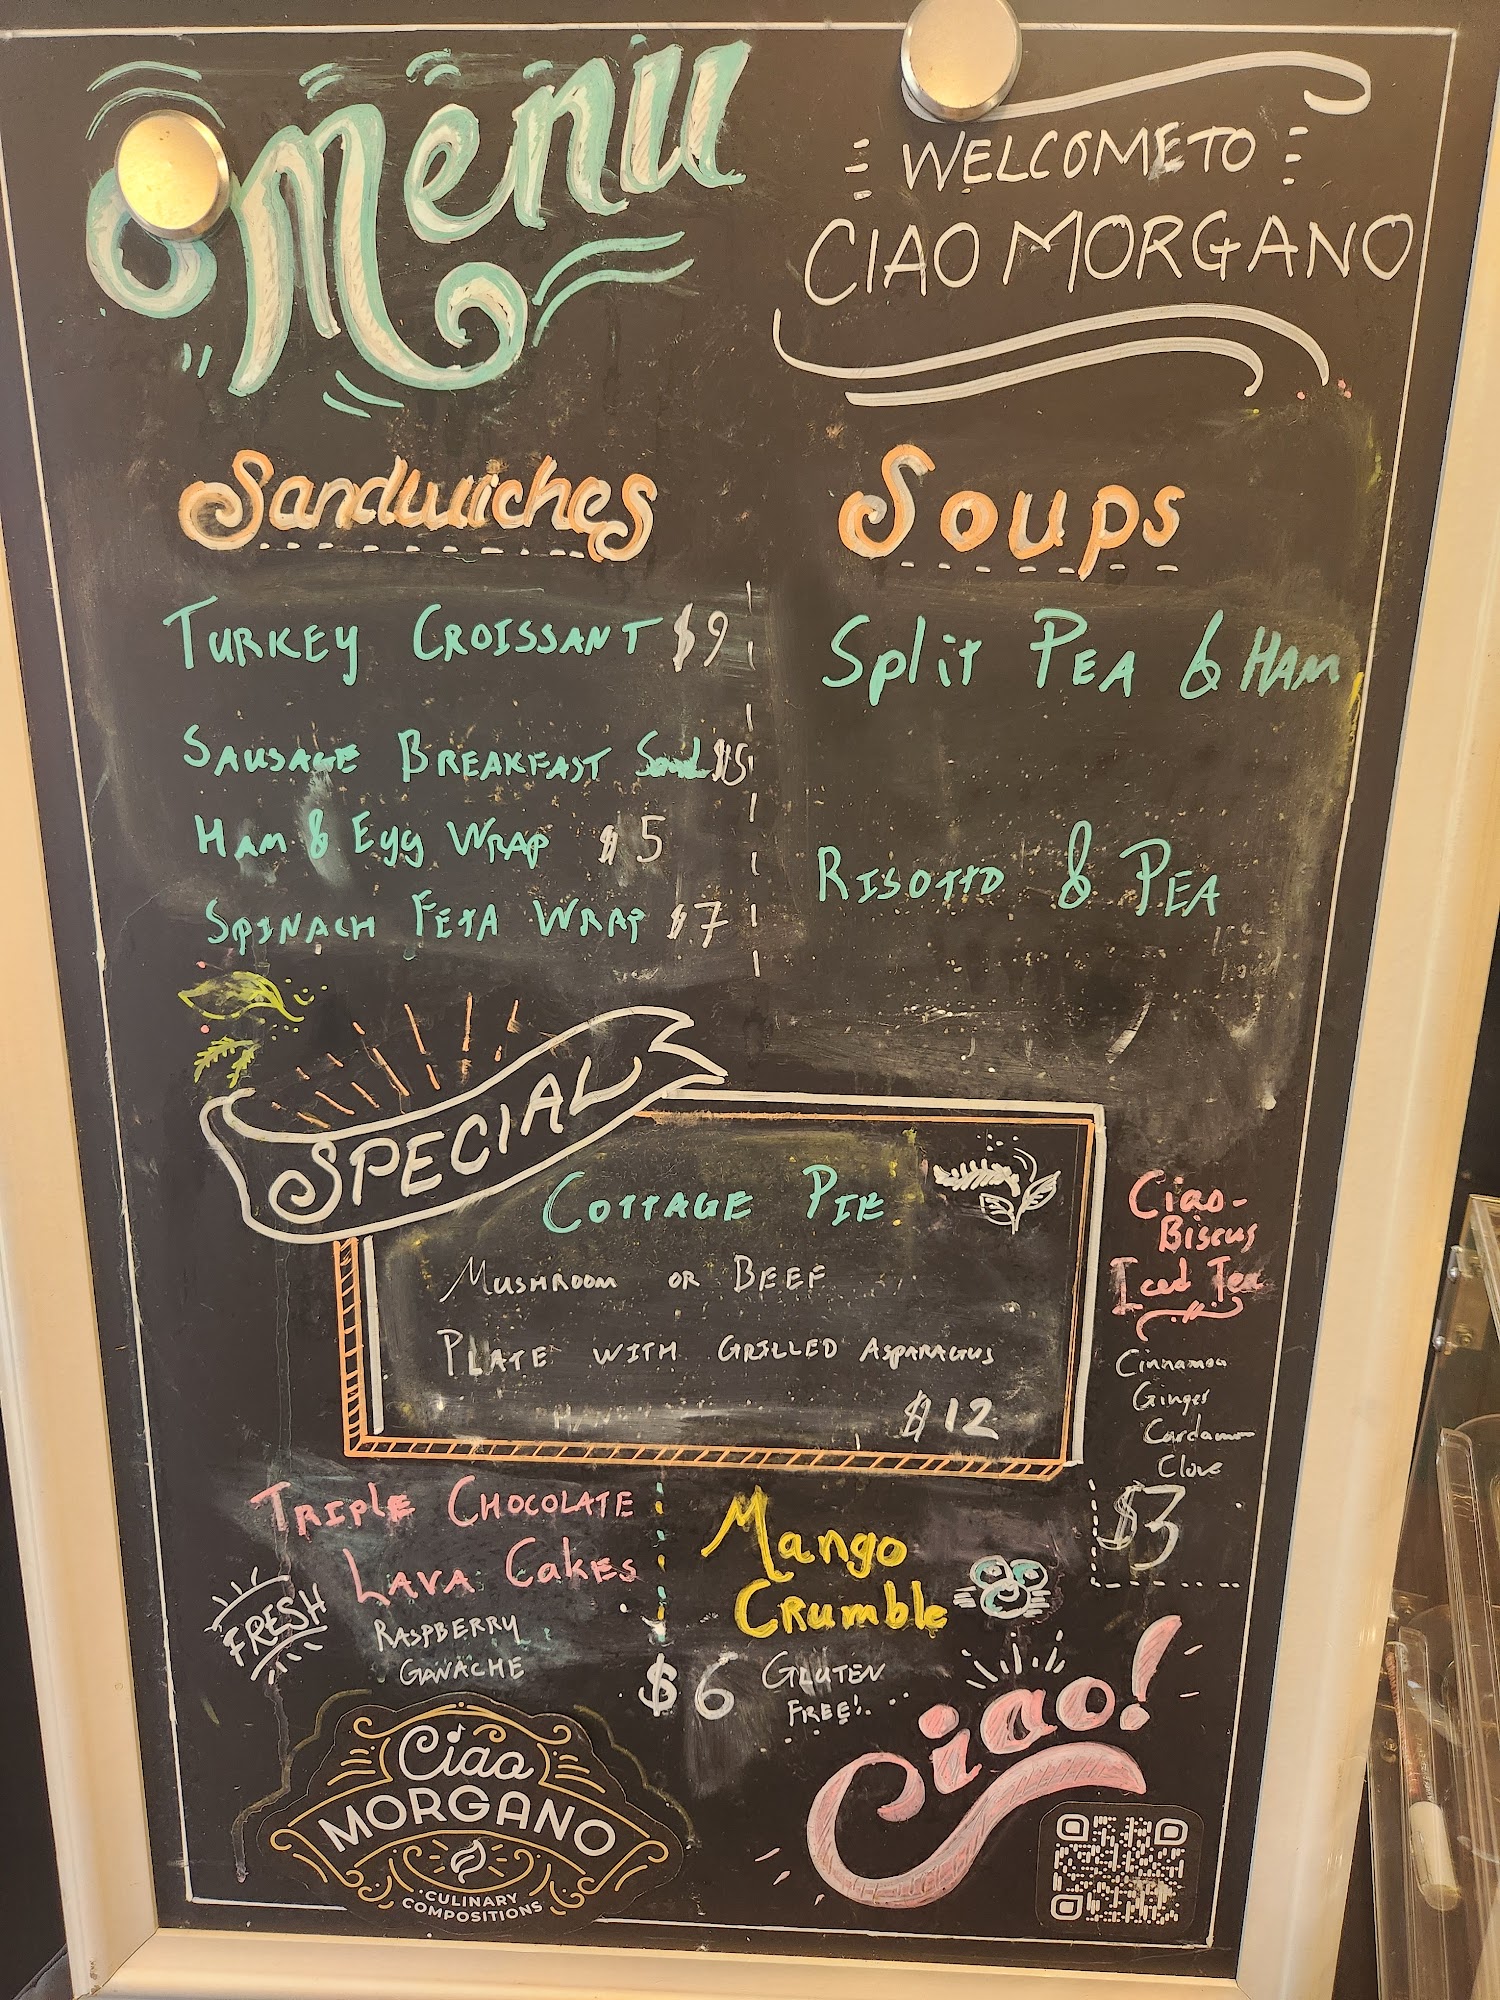 Menu
WELCOME TO
CIAO MORGANO
Sandwiches
TURKEY CROISSANT $9
SAUSAGE BREAKFAST Sand $5
HAM & Egg WRAP $5
SPINACH FETA WRAP $7
Soups
Split PEA & HAM
RISOTTO & PEA
SPECIAL
COTTAGE PIE
MUSHROOM OR BEEF
PLATE WITH GRILLED ASPARAGUS
$12
Ciao-
Biscus
Iced Tea
Cinnamon
Ginger
Cardamom
Clove
$3
TRIPLE CHOCOLATE
LAVA CAKES
FRESH
RASPBERRY
GANACHE
Mango
CRumble
$6 GLUTEN
FREE!
Ciao
MORGANO
CULINARY
COMPOSITIONS
Ciao!